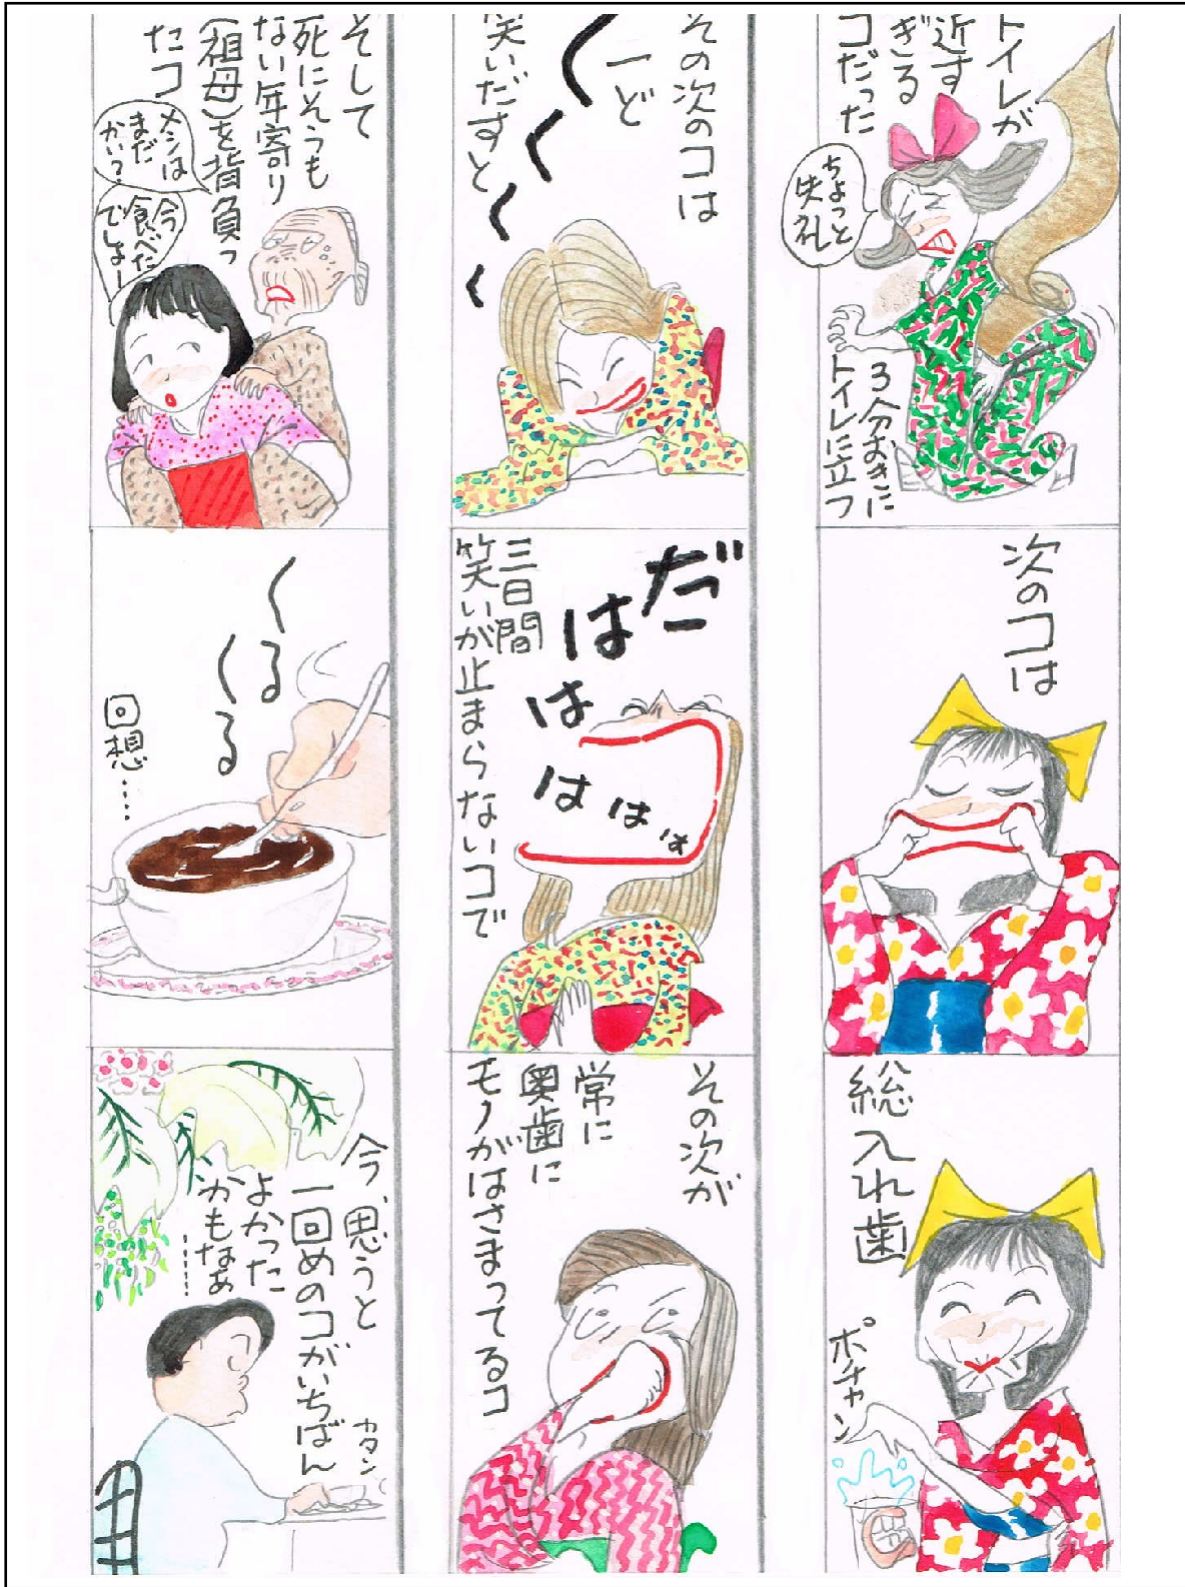 トイレが
近すぎる
コだった
ちょっと
失礼
3分おきに
トイレに立つ
次のコは
総入れ歯
ポチャン
その次のコは
一ど
笑いだすと
くくくく
だははははは
三日間
笑いが止まらないコで
その次が
常に
奥歯に
モノがはさまってるコ
そして
死にそうも
ない年寄り
(祖母)を背負っ
たコ
メシは
まだ
かい?
今
食べた
でしょー
くる
くる
回想……
今、思うと
一回めのコがいちばん
よかった
かもなぁ
……
カタン